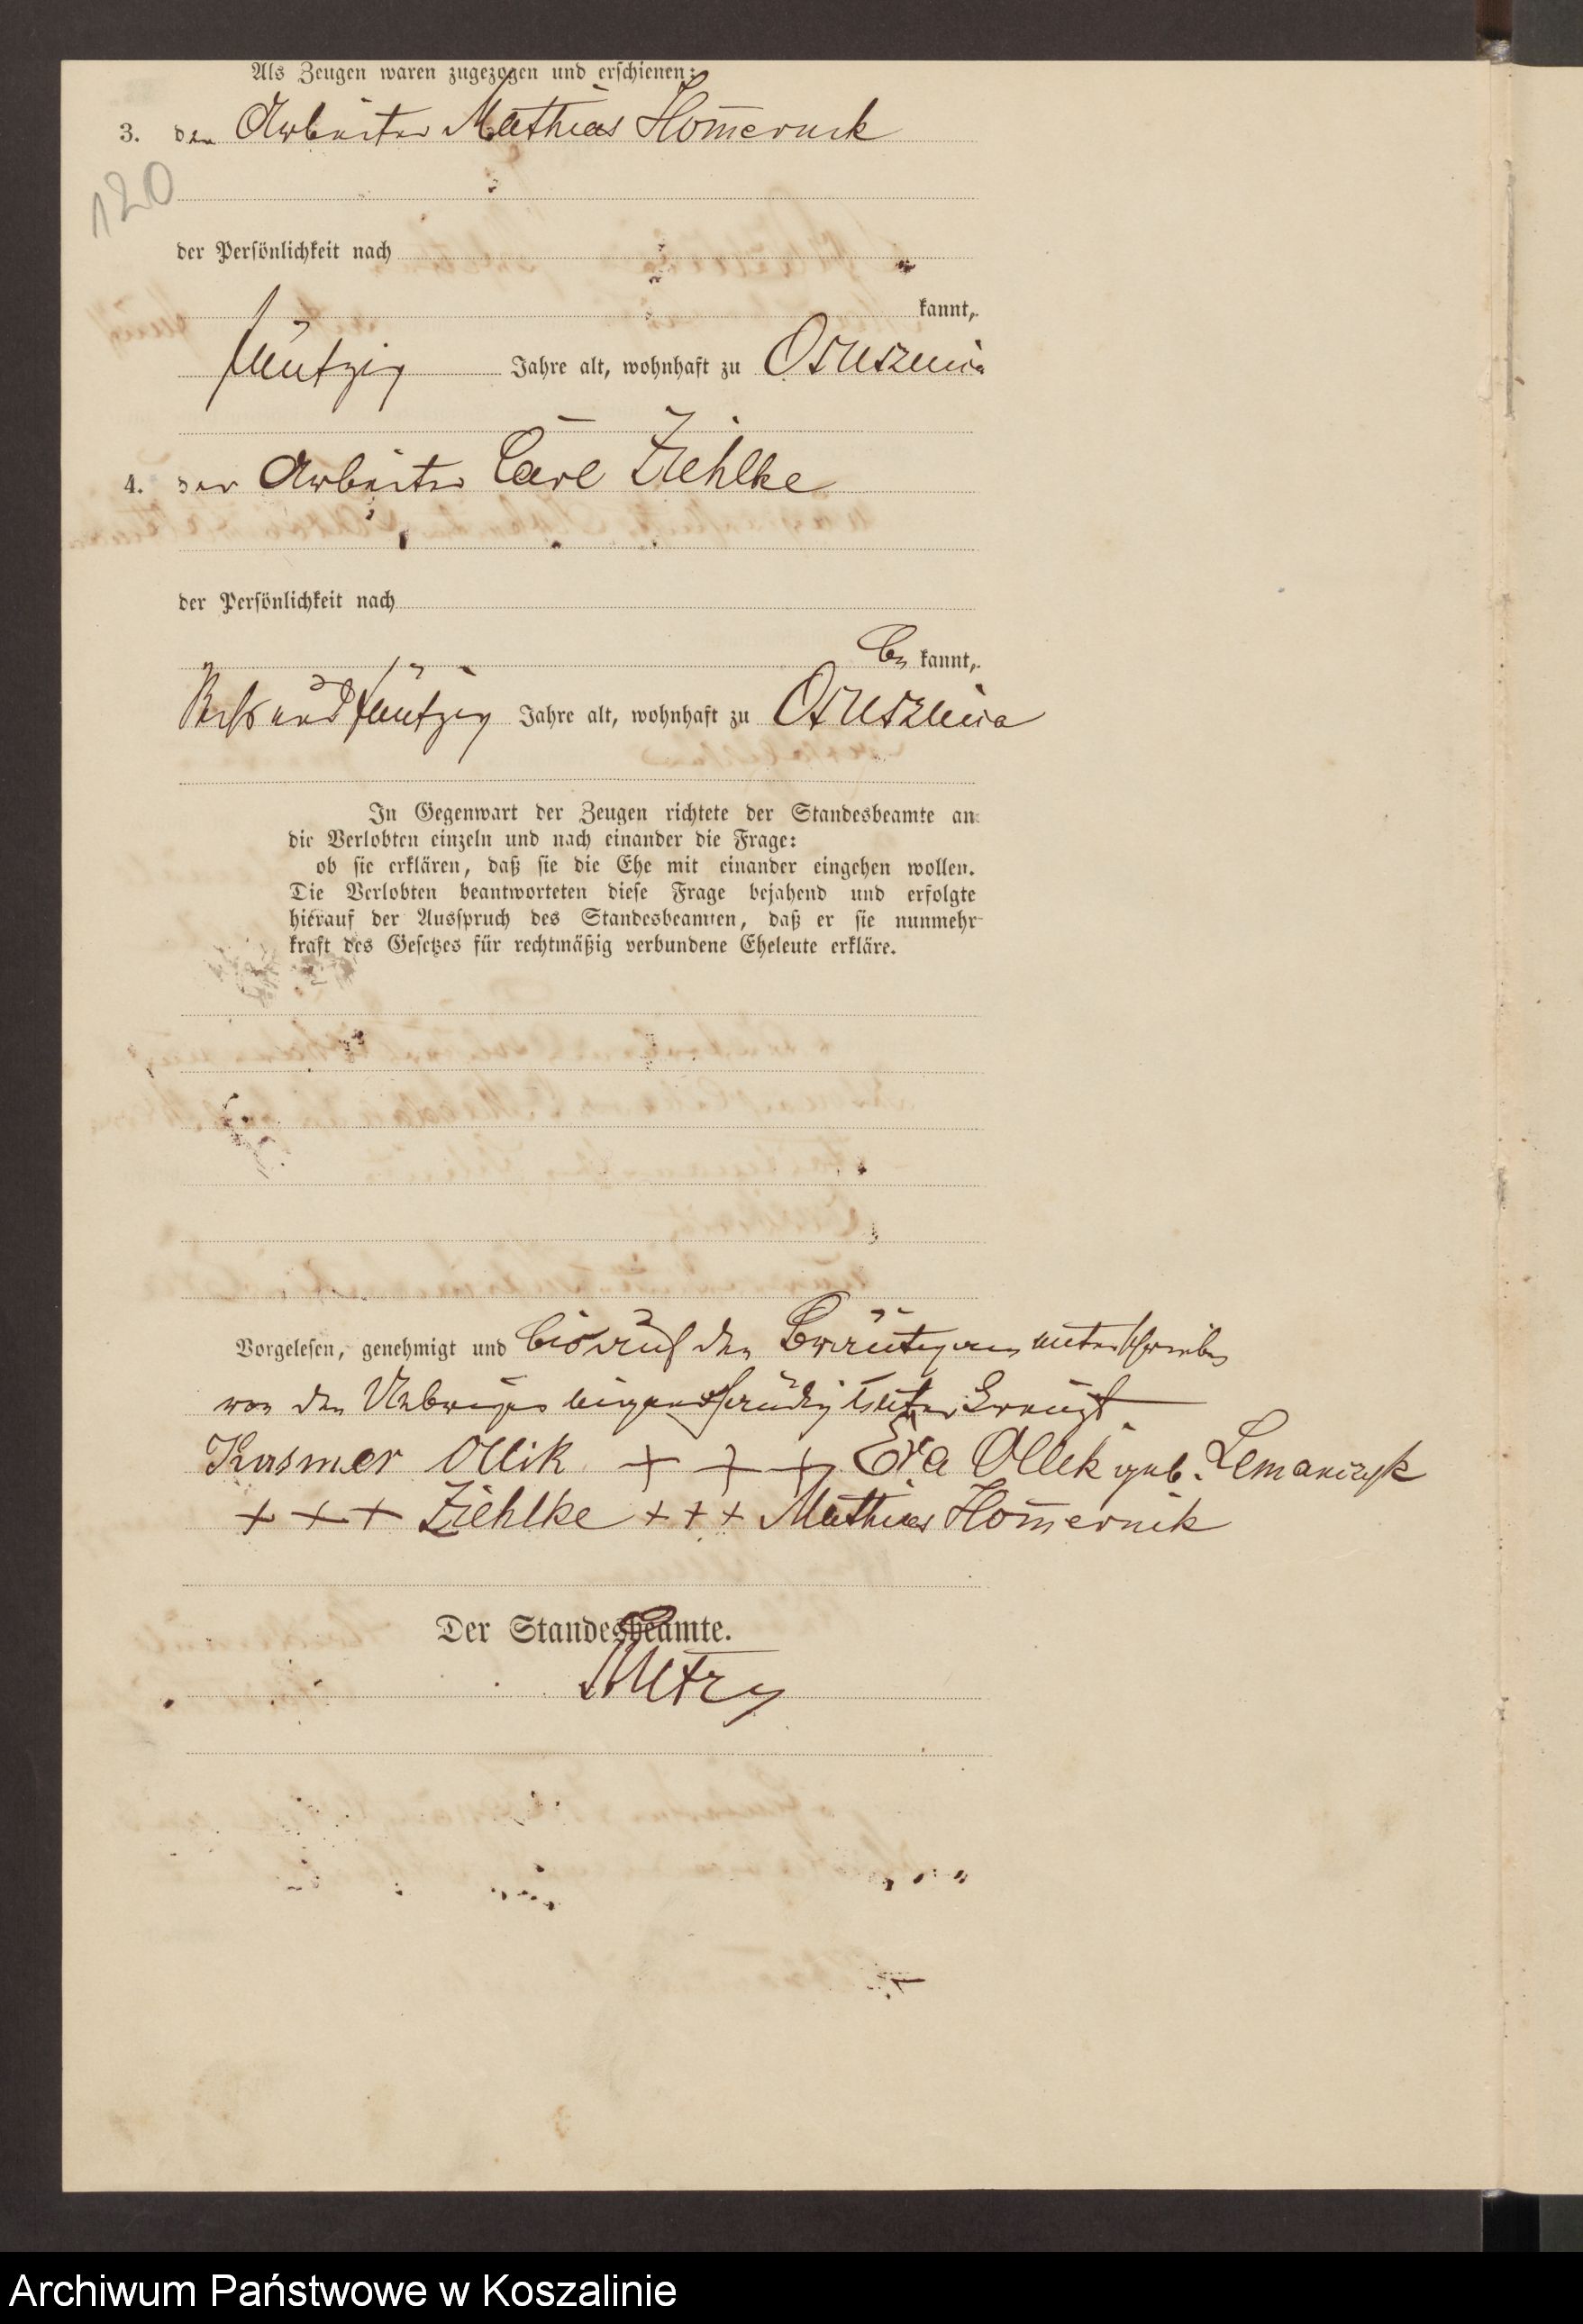 Als Zeugen waren zugezogen und erschienen:
3. der Arbeiter Mathias Hom̄ernik
120
der Persönlichkeit nach
kannt,
funfzig Jahre alt, wohnhaft zu Osuszniza
4. der Arbeiter Carl Ziehlke
der Persönlichkeit nach
be kannt,
Sechs und funfzig Jahre alt, wohnhaft zu Osuszniza
In Gegenwart der Zeugen richtete der Standesbeamte an
die Verlobten einzeln und nach einander die Frage:
ob sie erklären, daß sie die Ehe mit einander eingehen wollen.
Die Verlobten beantworteten diese Frage bejahend und erfolgte
hierauf der Ausspruch des Standesbeamten, daß er sie nunmehr
kraft des Gesetzes für rechtmäßig verbundene Eheleute erkläre.
Vorgelesen, genehmigt und bis auf den Bräutigam unterschrieben
von den Uebrigen eigenhändig unterkreuzt
Kasmer Ollik + + + Eva Ollik geb. Lemanczyk
+ + + Ziehlke + + + Mathias Hom̄ernik
Der Standesbeamte.
Archiwum Państwowe w Koszalinie